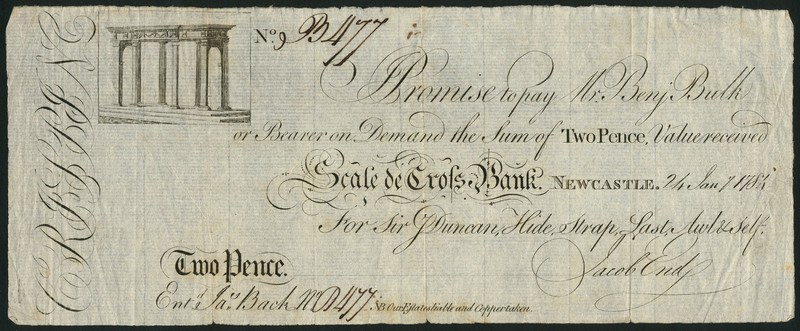 No. 9 B477
Promise to pay Mr. Benj Bulk
or Bearer on Demand the Sum of Two Pence, Value received
Scale de Croſs Bank. Newcastle. 24 Jany 1784
For Sir J Duncan, Hide, Strap, Last, Awl & Self.
Two Pence.
Jacob End
Entd. Jas. Bach No B477
NB Our Estates liable and Copper taken.